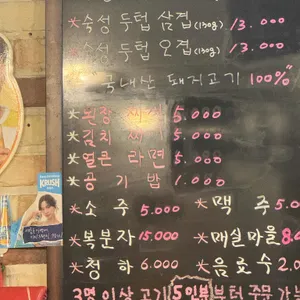 *숙성 두텁 삼겹(130g) 13.000
*숙성 두텁 오겹(130g) 13.000
*국내산 돼지고기 100%"
*된장찌개 5.000
*김치찌개 5.000
*얼큰라면 5.000
*공기밥 1.000
*소주 5.000 *맥주 5.0
*복분자 15.000 *매실마을 8.0
*청하 6.000 *음료수 2.0
3명 이상 고기 5인분부터 주문 가
KRUSH